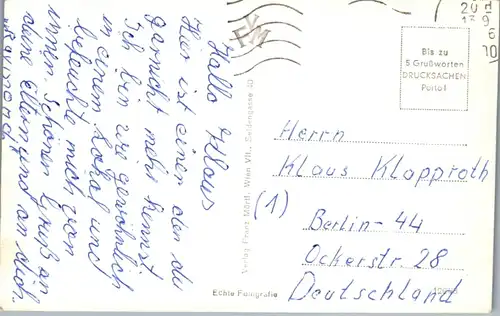 Hallo Klaus
Hier ist einer den du
garnicht mehr kennst
Ich bin wie gewöhnlich
in einem Lokal und
besuchte mich von
innen. Schönen Gruß an
deine Eltern und an dich
FVM
Bis zu
5 Grußworten
DRUCKSACHEN
Porto!
Herrn
Klaus Klapproth
(1)
Berlin-44
Ockerstr. 28
Deutschland
Verlag Franz Mörtl, Wien VII., Seidengasse 30
Echte Fotografie